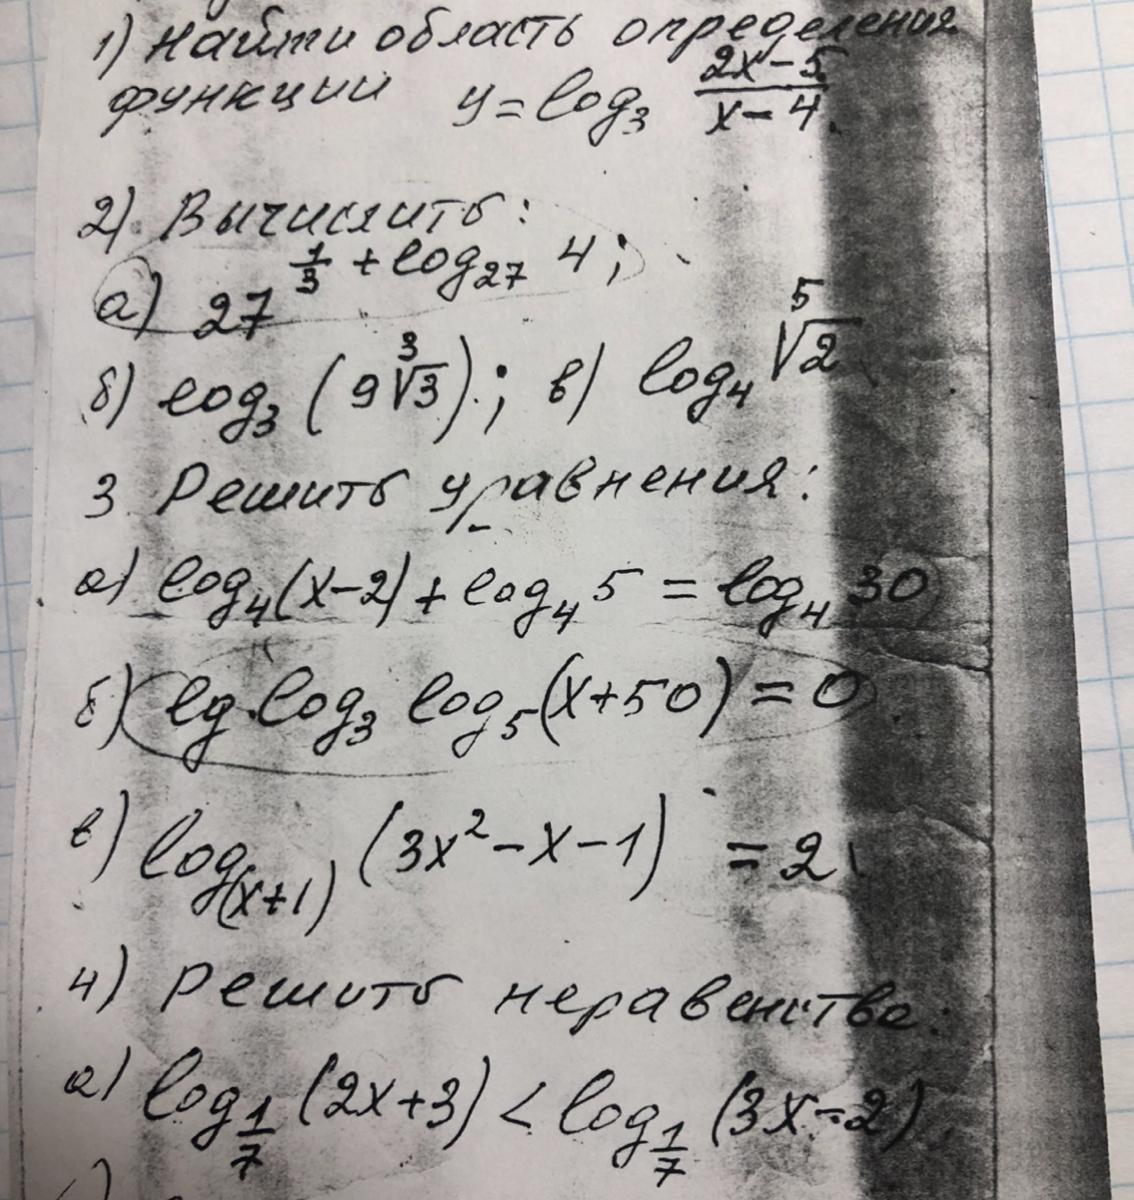 1) Найти область определения
функции y = log₃ (2x-5)/(x-4).
2) Вычислить:
а) 27^(1/3 + log₂₇ 4);
б) log₃ (9∛3); в) log₄ ⁵√2
3. Решить уравнения:
а) log₄(x-2) + log₄ 5 = log₄ 30
б) lg log₃ log₅(x+50) = 0.
в) log₍ₓ₊₁₎ (3x² - x - 1) = 2
4) Решить неравенства:
а) log_(1/7) (2x+3) < log_(1/7) (3x-2)